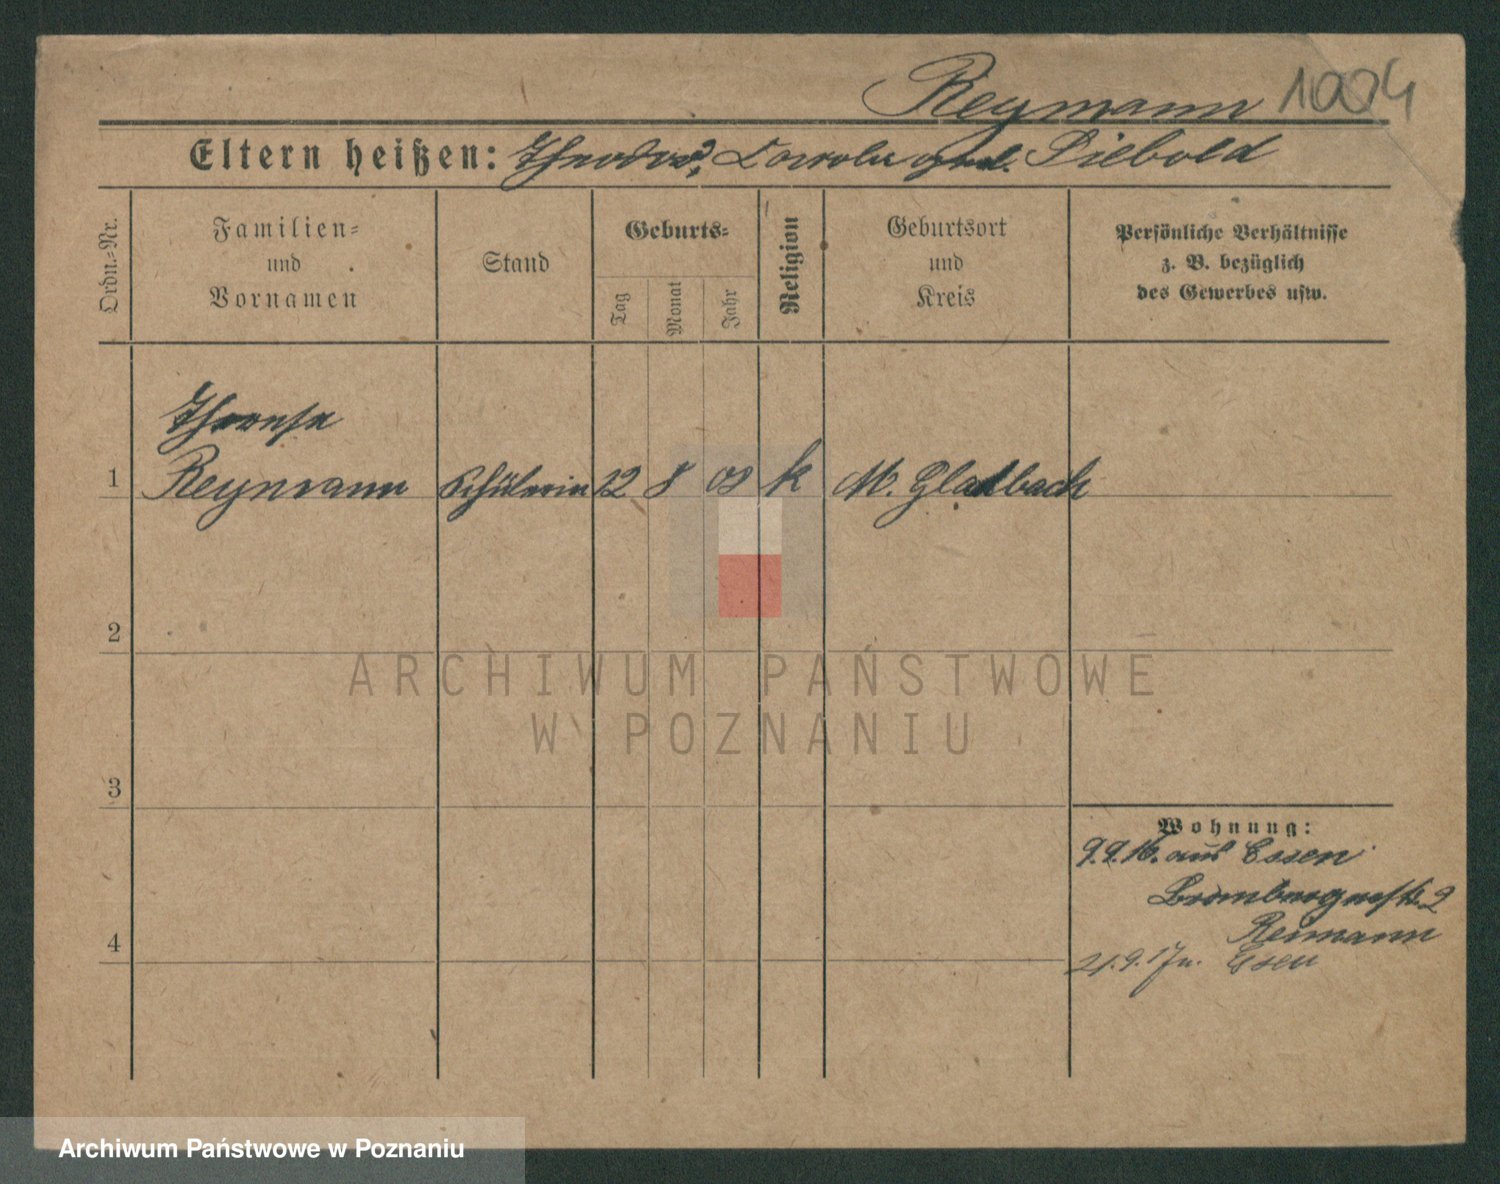 Reymann 1004
Eltern heißen: Theodor, geb. Siebold
Ordn.-Nr.
Familien-
und
Vornamen
Stand
Geburts-
Tag
Monat
Jahr
Religion
Geburtsort
und
Kreis
Persönliche Verhältnisse
z. B. bezüglich
des Gewerbes usw.
Therese
1 Reymann Schülerin 12 8 03 k M. Gladbach
2
3
4
Wohnung:
9.9.16. aus Essen
Brombergerstr. 2
Reimann
21.9.17 n. Essen
ARCHIWUM PAŃSTWOWE
W POZNANIU
Archiwum Państwowe w Poznaniu